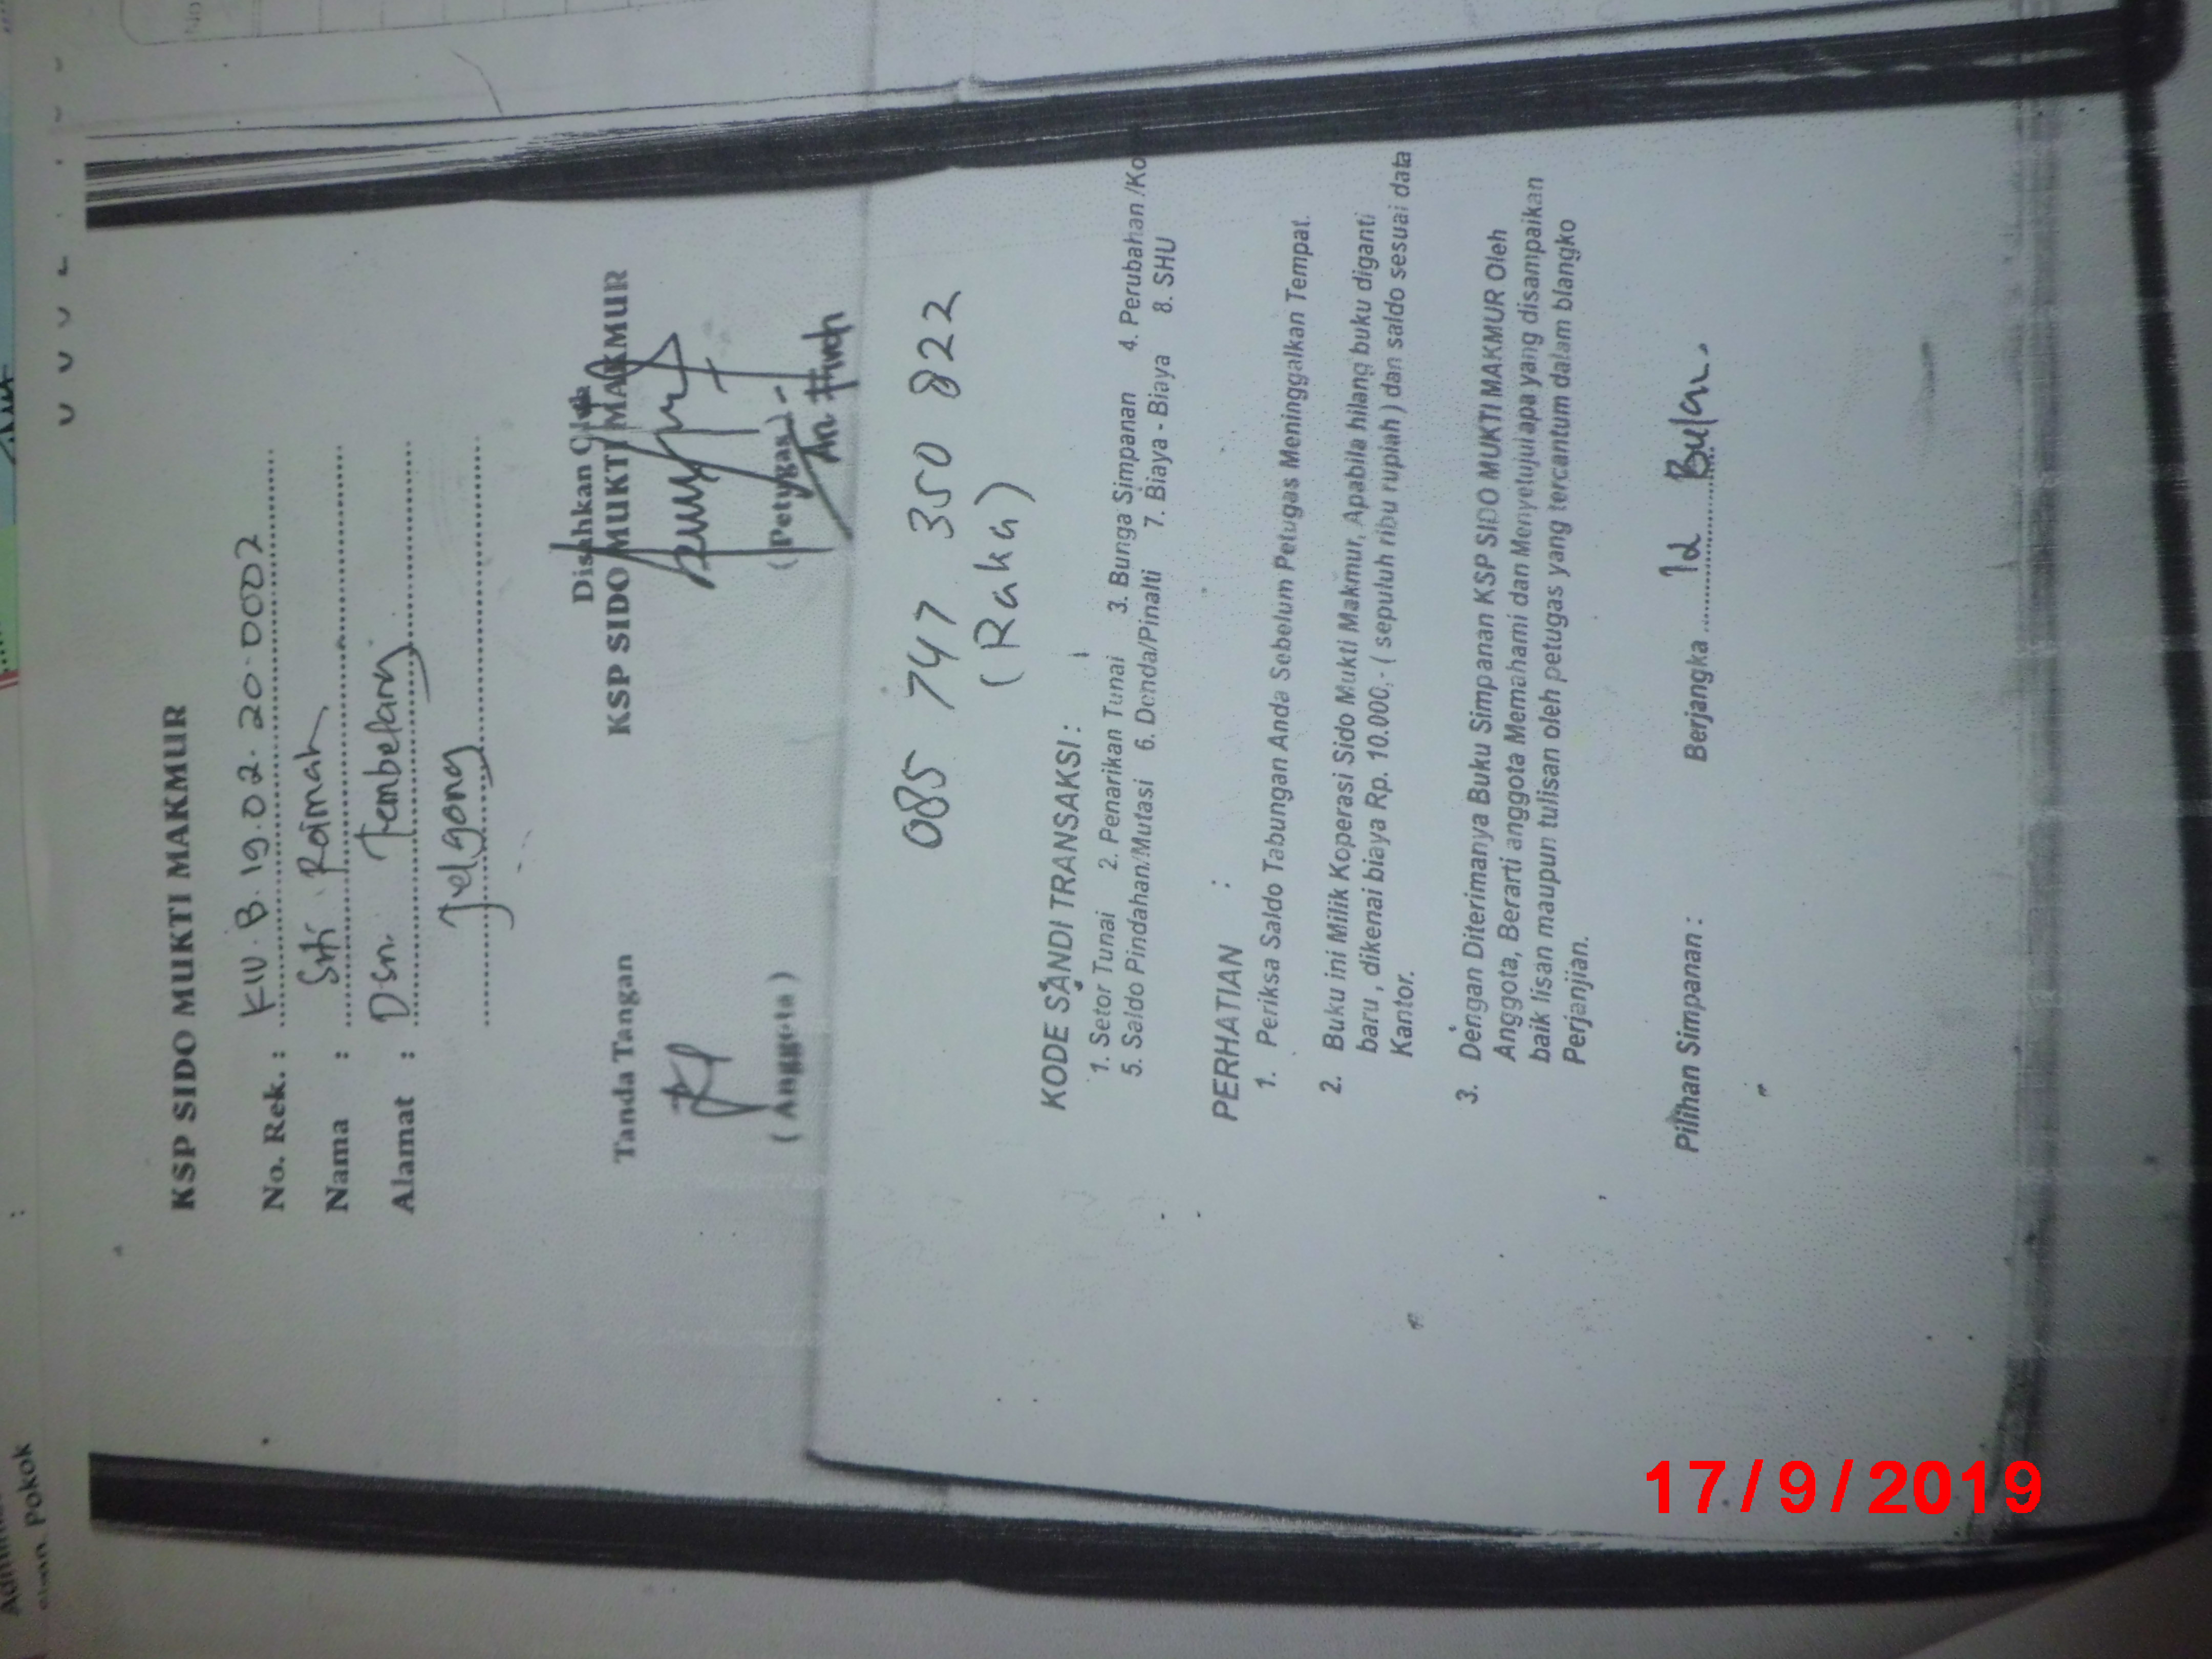 KSP SIDO MUKTI MAKMUR
No. Rek. : KIU.B.19.02.20.0002
Nama : Siti Roimah
Alamat : Dsn. Tembelang
Jelgong
Disahkan Oleh
Tanda Tangan KSP SIDO MUKTI MAKMUR
( Anggota ) ( Petugas )
085 747 350 822
(Raka)
KODE SANDI TRANSAKSI :
1. Setor Tunai 2. Penarikan Tunai 3. Bunga Simpanan 4. Perubahan /Ko
5. Saldo Pindahan/Mutasi 6. Denda/Pinalti 7. Biaya - Biaya 8. SHU
PERHATIAN :
1. Periksa Saldo Tabungan Anda Sebelum Petugas Meninggalkan Tempat.
2. Buku ini Milik Koperasi Sido Mukti Makmur, Apabila hilang buku diganti
baru , dikenai biaya Rp. 10.000,- ( sepuluh ribu rupiah ) dan saldo sesuai data
Kantor.
3. Dengan Diterimanya Buku Simpanan KSP SIDO MUKTI MAKMUR Oleh
Anggota, Berarti anggota Memahami dan Menyetujui apa yang disampaikan
baik lisan maupun tulisan oleh petugas yang tercantum dalam blangko
Perjanjian.
Pilihan Simpanan : Berjangka 12 Bulan.
Pokok
17/9/2019